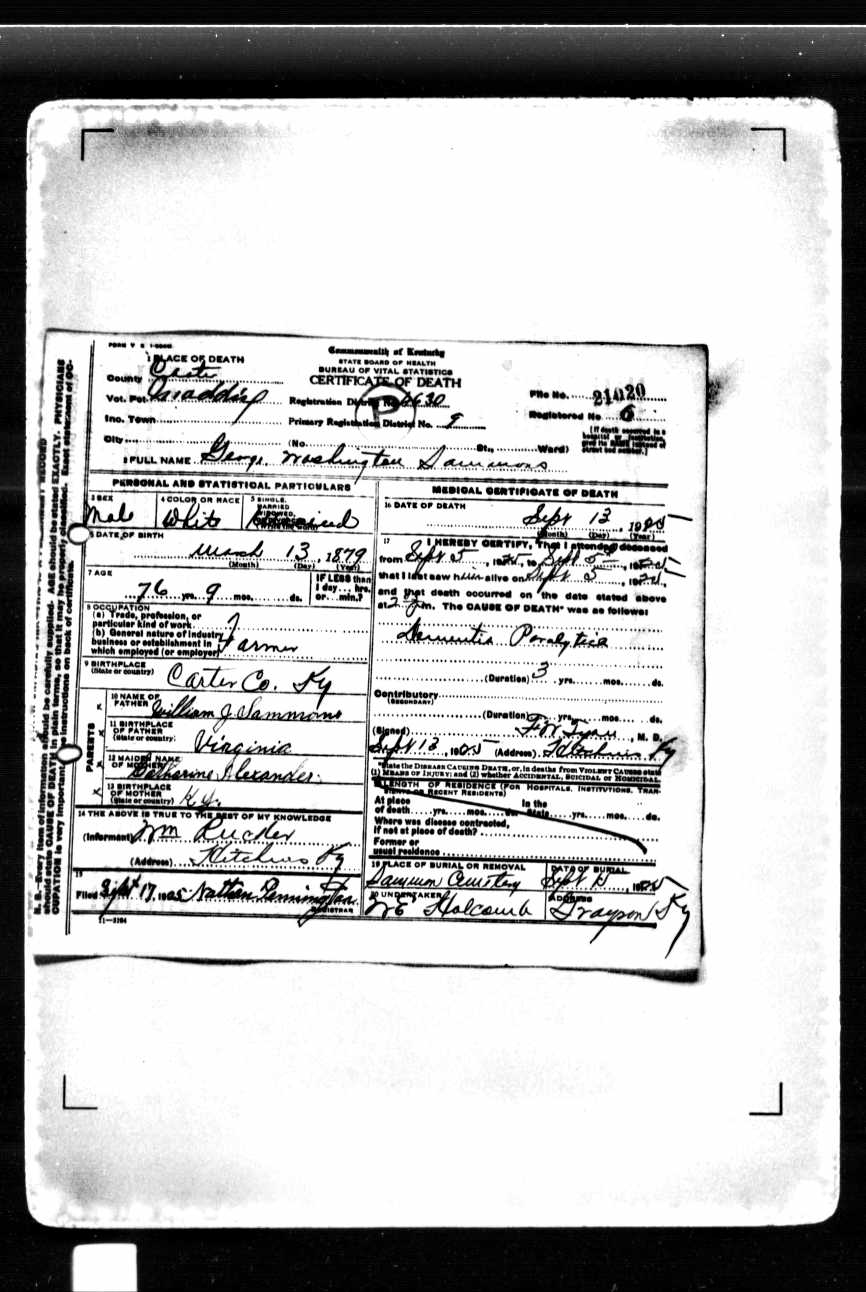 FORM V S 1-50M
1 PLACE OF DEATH
Commonwealth of Kentucky
STATE BOARD OF HEALTH
BUREAU OF VITAL STATISTICS
CERTIFICATE OF DEATH
County Carter
Vot. Pct.
Registration District No. 6630
File No. 21020
Inc. Town
Primary Registration District No. 9
Registered No 6
City
(No. St., Ward)
(If death occurred in a hospital or institution, give its NAME instead of street and number.)
2 FULL NAME George Washington Sammons
PERSONAL AND STATISTICAL PARTICULARS
3 SEX
Male
4 COLOR OR RACE
White
5 SINGLE, MARRIED WIDOWED,
6 DATE OF BIRTH
March 13, 1879
(Month) (Day) (Year)
7 AGE
76 yrs. 9 mos. ds.
IF LESS than
1 day... hrs.
or... min.?
8 OCCUPATION
(a) Trade, profession, or
particular kind of work
(b) General nature of industry
business or establishment in
which employed (or employer)
Farmer
9 BIRTHPLACE
(State or country)
Carter Co. Ky
PARENTS
10 NAME OF
FATHER William J Sammons
11 BIRTHPLACE
OF FATHER
(State or country)
Virginia
12 MAIDEN NAME
OF MOTHER Catharine Alexander
13 BIRTHPLACE
OF MOTHER
(State or country) Ky.
14 THE ABOVE IS TRUE TO THE BEST OF MY KNOWLEDGE
(Informant) Wm Rucker
(Address) Kitchins Ky
15
Filed Sept 17, 1925 Nathan Pennington
REGISTRAR
11-3184
MEDICAL CERTIFICATE OF DEATH
16 DATE OF DEATH
Sept 13, 1925
(Month) (Day) (Year)
17 I HEREBY CERTIFY, That I attended deceased
from Sept 5, 1925, to Sept 5, 1925,
that I last saw him alive on Sept 5, 1925,
and that death occurred on the date stated above
at 2 P m. The CAUSE OF DEATH* was as follows:
Dementia Paralytica
(Duration) 3 yrs. mos. ds.
Contributory
(SECONDARY)
(Duration) yrs. mos. ds.
(Signed) M. D.
Sept 13, 1925 (Address) Ky
*State the DISEASE CAUSING DEATH, or, in deaths from VIOLENT CAUSES state
(1) MEANS OF INJURY; and (2) whether ACCIDENTAL, SUICIDAL or HOMICIDAL.
LENGTH OF RESIDENCE (FOR HOSPITALS, INSTITUTIONS, TRAN-
SIENTS OR RECENT RESIDENTS)
At place
of death yrs. mos. ds.
In the
State yrs. mos. ds.
Where was disease contracted,
if not at place of death?
Former or
usual residence
19 PLACE OF BURIAL OR REMOVAL
Sammon Cemetery
DATE OF BURIAL
20 UNDERTAKER
WE Holcomb
ADDRESS
Grayson Ky